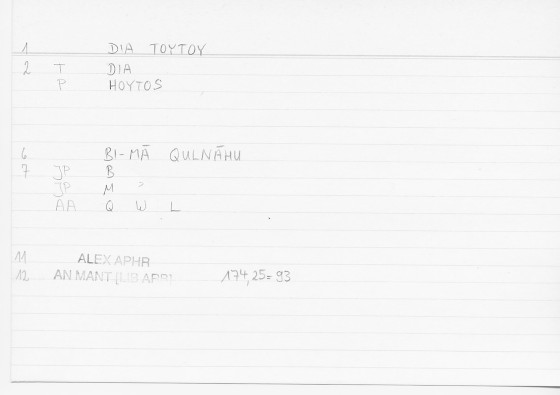 1 DIA TOYTOY
2 T DIA
P HOYTOS
6 BI-MĀ QULNĀHU
7 JP B
JP M ʾ
AA Q W L
11 ALEX APHR
12 AN.MANT.[LIB ARB] 174,25=93